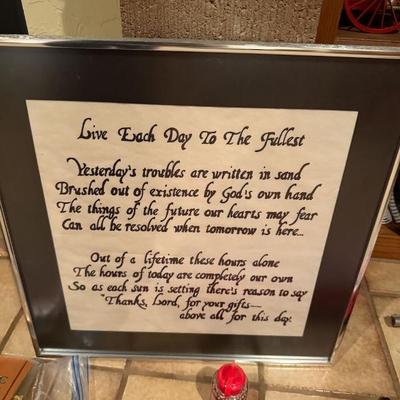 Live Each Day To The Fullest
Yesterday's troubles are written in sand
Brushed out of existence by God's own hand
The things of the future our hearts may fear
Can all be resolved when tomorrow is here...
Out of a lifetime these hours alone
The hours of today are completely our own
So as each sun is setting there's reason to say
"Thanks, Lord, for your gifts—
above all for this day.